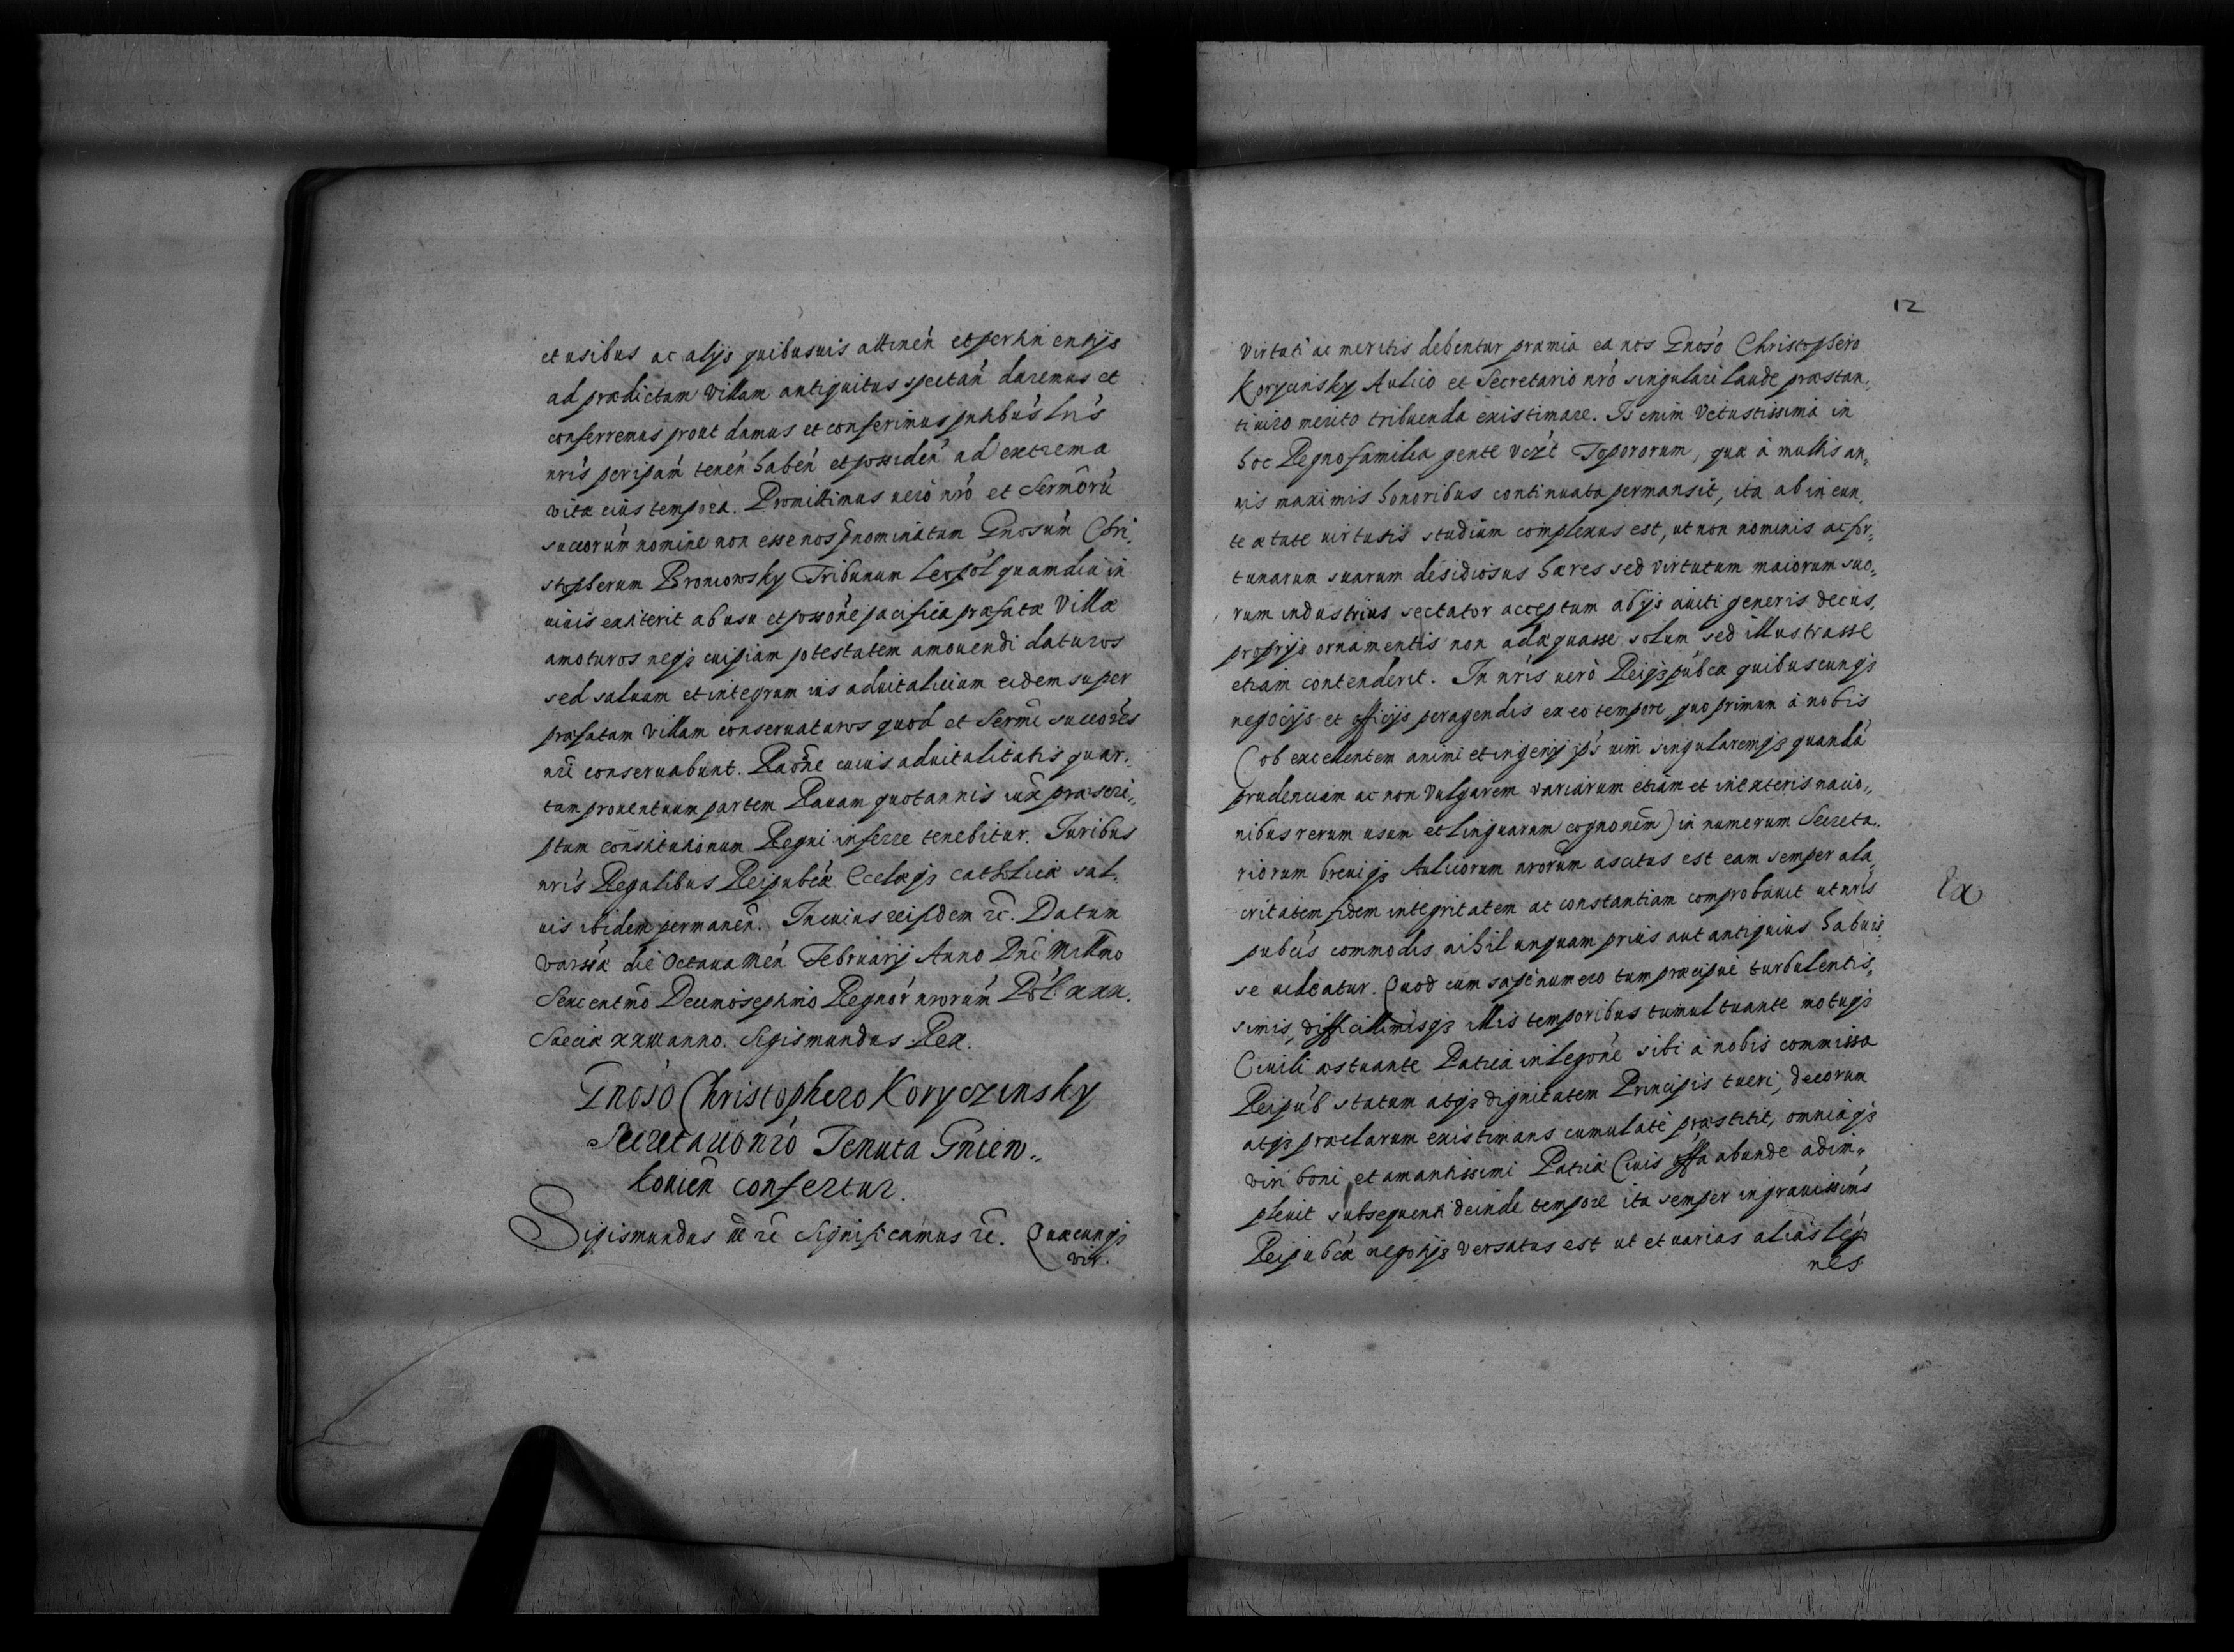 et usibus ac alijs quibusuis attinen̄ et pertinentijs
ad prædictam Villam antiquitus spectan̄ daremus et
conferremus prout damus et conferimus pntibūs lrīs
nrīs per ipsam̄ tenen̄ haben̄ et possiden̄ ad extrema
vitæ eius tempora. Promittimus uero nrō et Sermōrū
succorūm nomine non esse nos pnominatum Gnosūm Chri,
stopherum Broniowsky Tribunum Leopōl quamdiu in
uiuis extiterit ab usu et possōne pacifica præfatæ Villæ
amoturos neq3 cuipiam potestatem amouendi daturos
sed saluum et integrum ius aduitalicium eidem super
præfatam Villam conseruaturos quod et Sermī succorēs
nrī conseruabunt. Raōne cuius aduitalitatis quar,
tam prouentuum partem Rauam quotannis iuā præscri,,
ptum constitutionum Regni inferre tenebitur. Iuribus
nrīs Regalibus Reipubcā Ecclæq3 Catholicæ sal,
uis ibidem permanen̄. In cuius rei fidem rc̄. Datum
varsiæ die Octaua Men̄ Februarij Anno Dnī Millmo
Sexcentmō Decimoseptimo Regnōr nrorūm Pōl xxx.
Sueciæ xxiii anno. Sigismundus Rex.
Gnosō Christophero Koryczinsky
Secretario nrō Tenuta Gniew,,
kouien̄ confertur.
Sigismundus III rc̄ Significamus rc̄. Quæcunq3
vir.
12
virtuti ac meritis debentur præmia ea nos Gnosō Christophero
Korycinsky Aulico et Secretario nrō singulari laude præstan,
ti uiro merito tribuenda existimare. Is enim Vetustissima in
hoc Regno familia gente verō Topororum, quæ à multis an,
nis maximis honoribus continuata permansit, ita ab ineun,
te ætate uirtutis studium complexus est, ut non nominis ac for,
tunarum suarum desidiosus hæres sed virtutum maiorum suo,
rum industrius sectator acceptum ab ijs auiti generis decus,
proprijs ornamentis non adæquasse solum sed illustrasse
etiam contenderit. In nrīs uerò Reiq3 pubcæ quibuscunq3
negocijs et officijs peragendis ex eo tempore quo primum à nobis
(ob excellentem animi et ingenij ips̄ uim singularemq3 quandā
prudenciam ac non vulgarem variarum etiam et in exteris nacio,,
nibus rerum usum et linguarum cognonēm) in numerum Secreta,,
riorum breuiq3 Aulicorum nrorūm ascitus est eam semper ala,
critatem fidem integritatem ac constantiam comprobauit ut nrīs
pubcīs commodis nihil unquam prius aut antiquius habuis,
se uideatur. Quod cum sæpenumero tum præcipuè turbulentis,
simis, difficillimisq3 illis temporibus tumultuante motuq3
Ciuili æstuante Patria in legōne sibi à nobis commissa
Reipūb statum atq3 dignitatem Principis tueri, decorum
atq3 præclarum existimans cumulatè præstitit, omniaq3
viri boni et amantissimi Patriæ Ciuis offā abunde adim,,
pleuit subsequenti deinde tempore ita semper in grauissimīs
Reipubcæ negotijs versatus est ut et uarias alias lego
nes
Ex